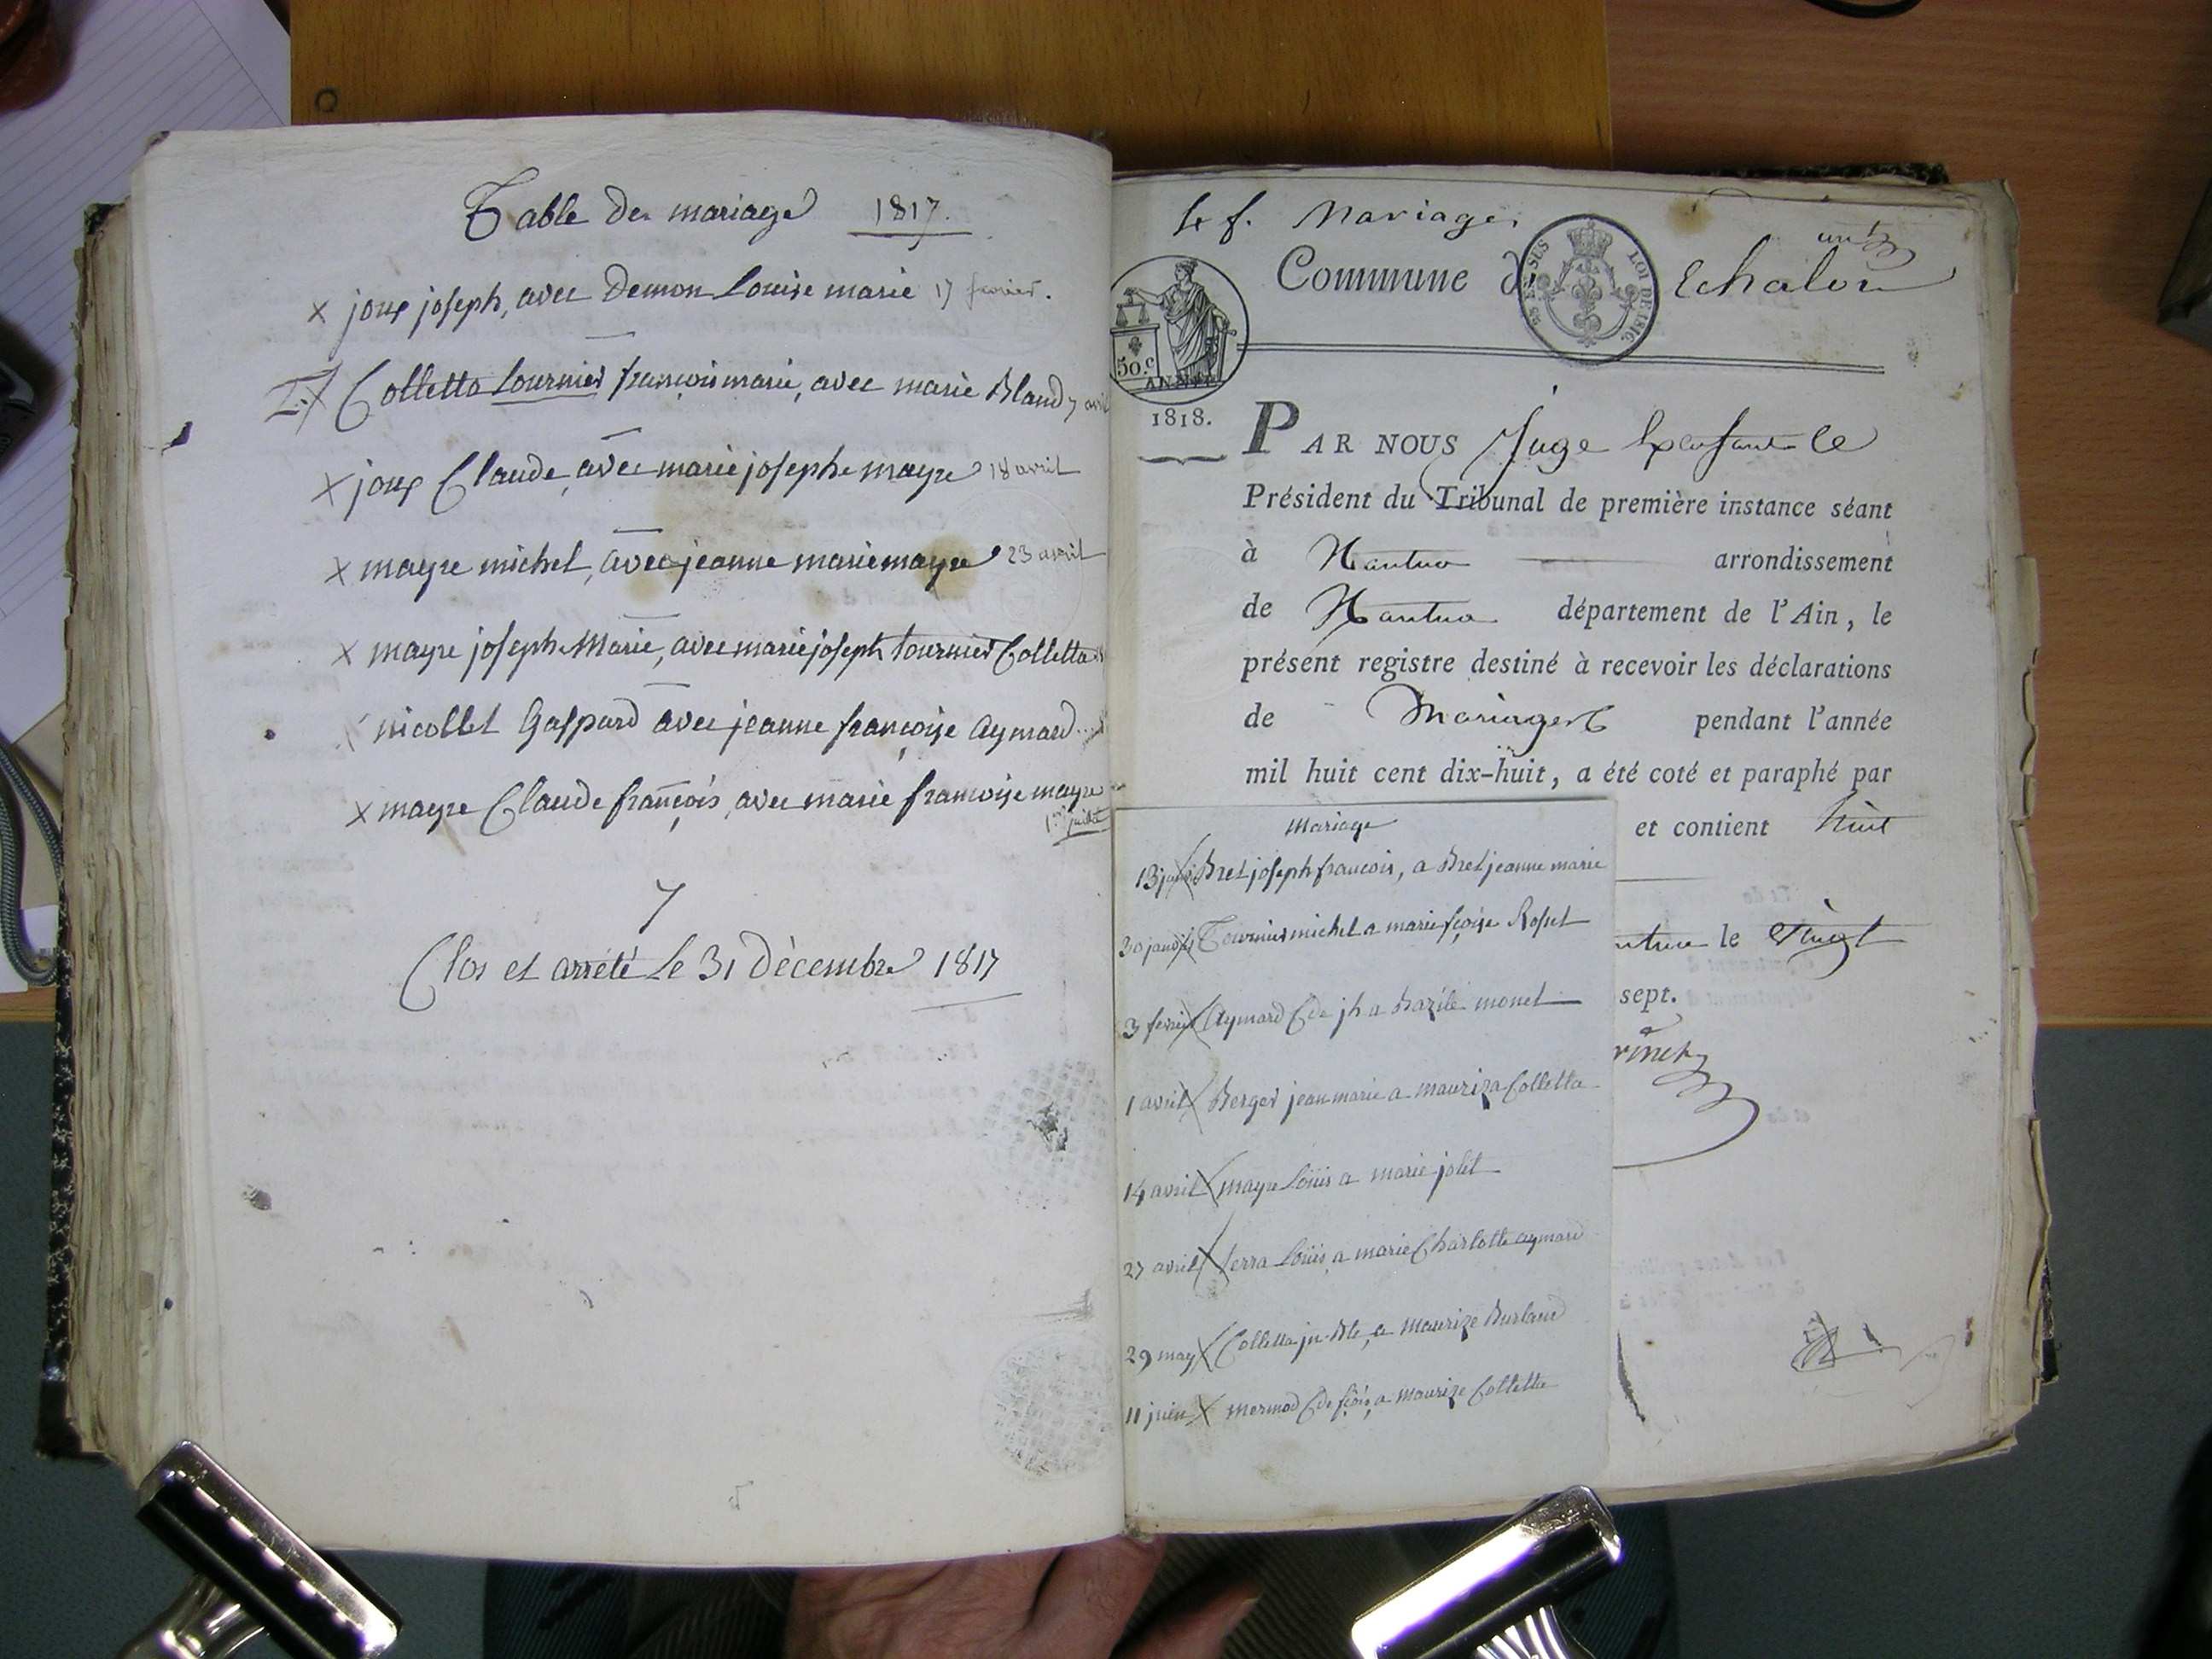 Table de mariage 1817.
x joux joseph, avec Demon Louise marie 17 fevrier.
x Colletta tournier françois marie, avec marie Bland 7 avril
x joux Claude, avec marie josephe mayre 18 avril
x mayre michel, avec jeanne marie mayre 23 avril
x mayre joseph Marie, avec marie joseph tournier Colletta
nicollet Gaspard avec jeanne françoise Aymard
x mayre Claude françois, avec marie francoise mayre
1er juillet
7
Clos et arrété Le 31 Décembre 1817
4 f. Mariages
Commune d Echalon
50.c
LOI DE 1816.
1818.
PAR NOUS Juge le
Président du Tribunal de première instance séant
à Nantua arrondissement
de Nantua département de l'Ain, le
présent registre destiné à recevoir les déclarations
de Mariages pendant l'année
mil huit cent dix-huit, a été coté et paraphé par
et contient huit
ntua le vingt
sept.
Mariage
13 janv x Bret joseph francois, a Bret jeanne marie
30 janv x Tournier michel a marie fçoise Rosset
3 fevrier x Aymard Cde jh a Bazile monet
1 avril x Berger jean marie a mauriza Colletta
14 avril x mayre Louis a marie jolet
27 avril x Serra Louis, a marie Charlotte aymard
29 may x Colletta jn. Bte, a Maurize Burland
11 juin x mermod Cde fçois, a Maurize Colletta